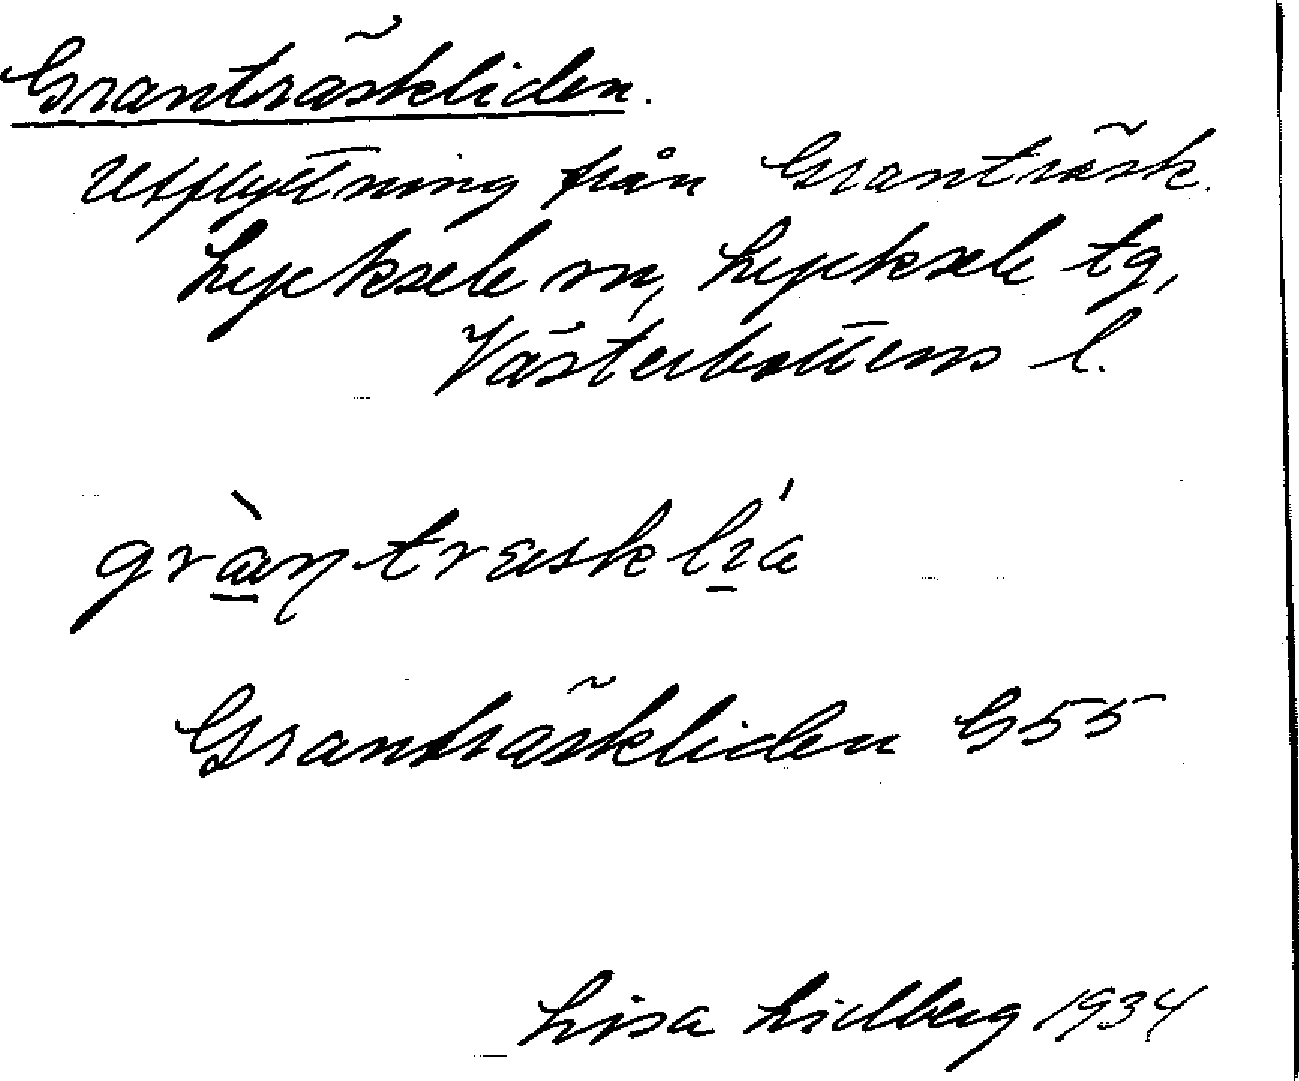 Granträskliden.
Utflyttning från Granträsk.
Lycksele sn, Lycksele tg,
Västerbottens l.
Granträskliden G55
Lisa Lidberg 1934